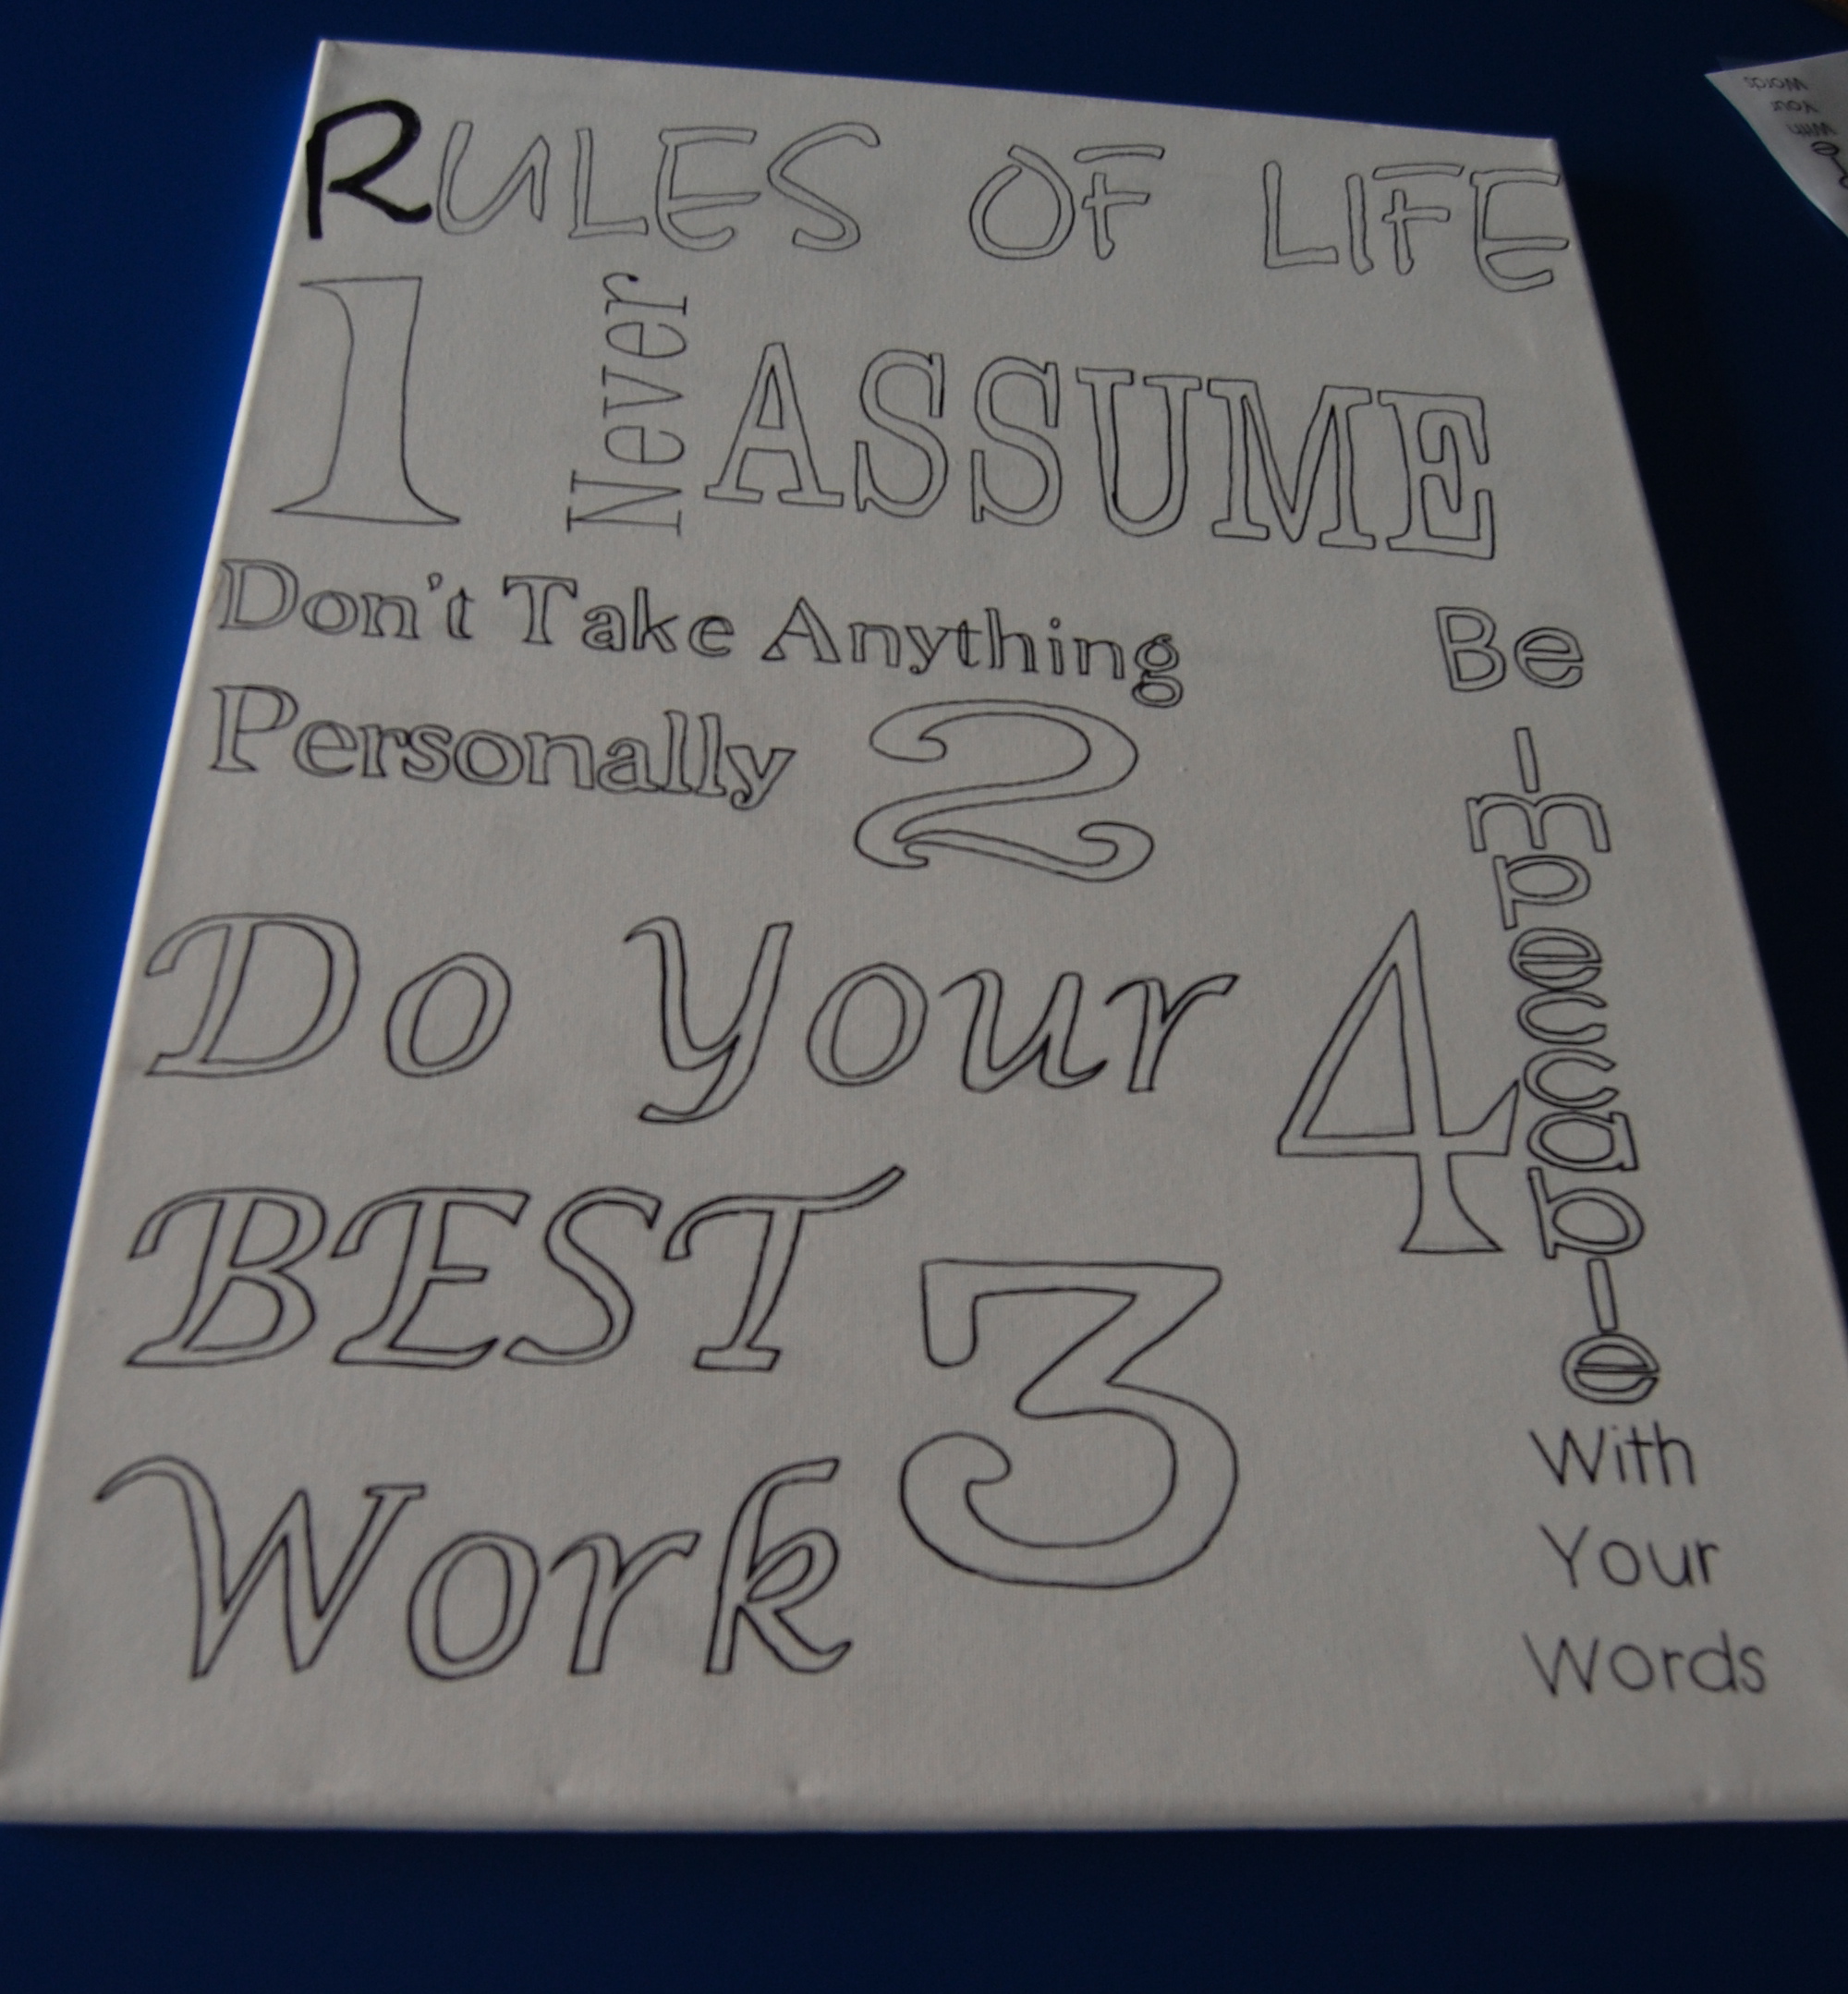 RULES OF LIFE
1 Never ASSUME
Don't Take Anything
Personally 2
Do Your
BEST
Work 3
4
Be
Impeccable
With
Your
Words
Words
Your
With